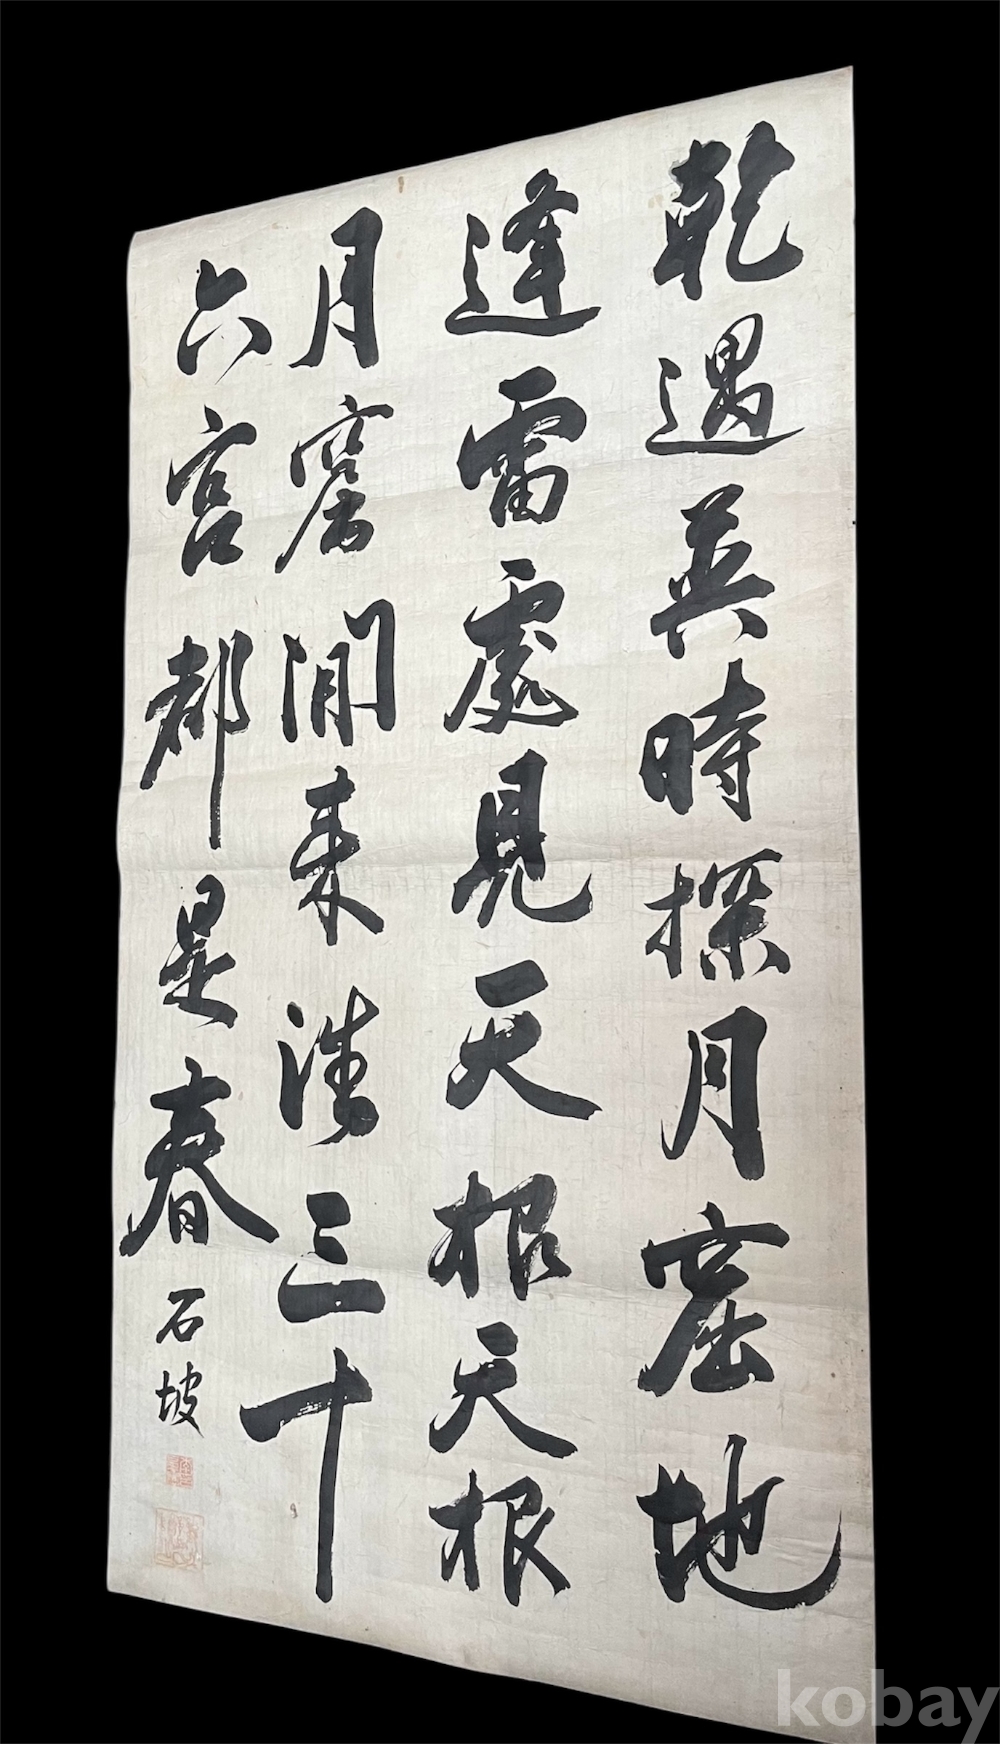 乾遇巽時探月窟地
逢雷處見天根天根
月窟閒來往三十
六宮都是春
石坡
kobay